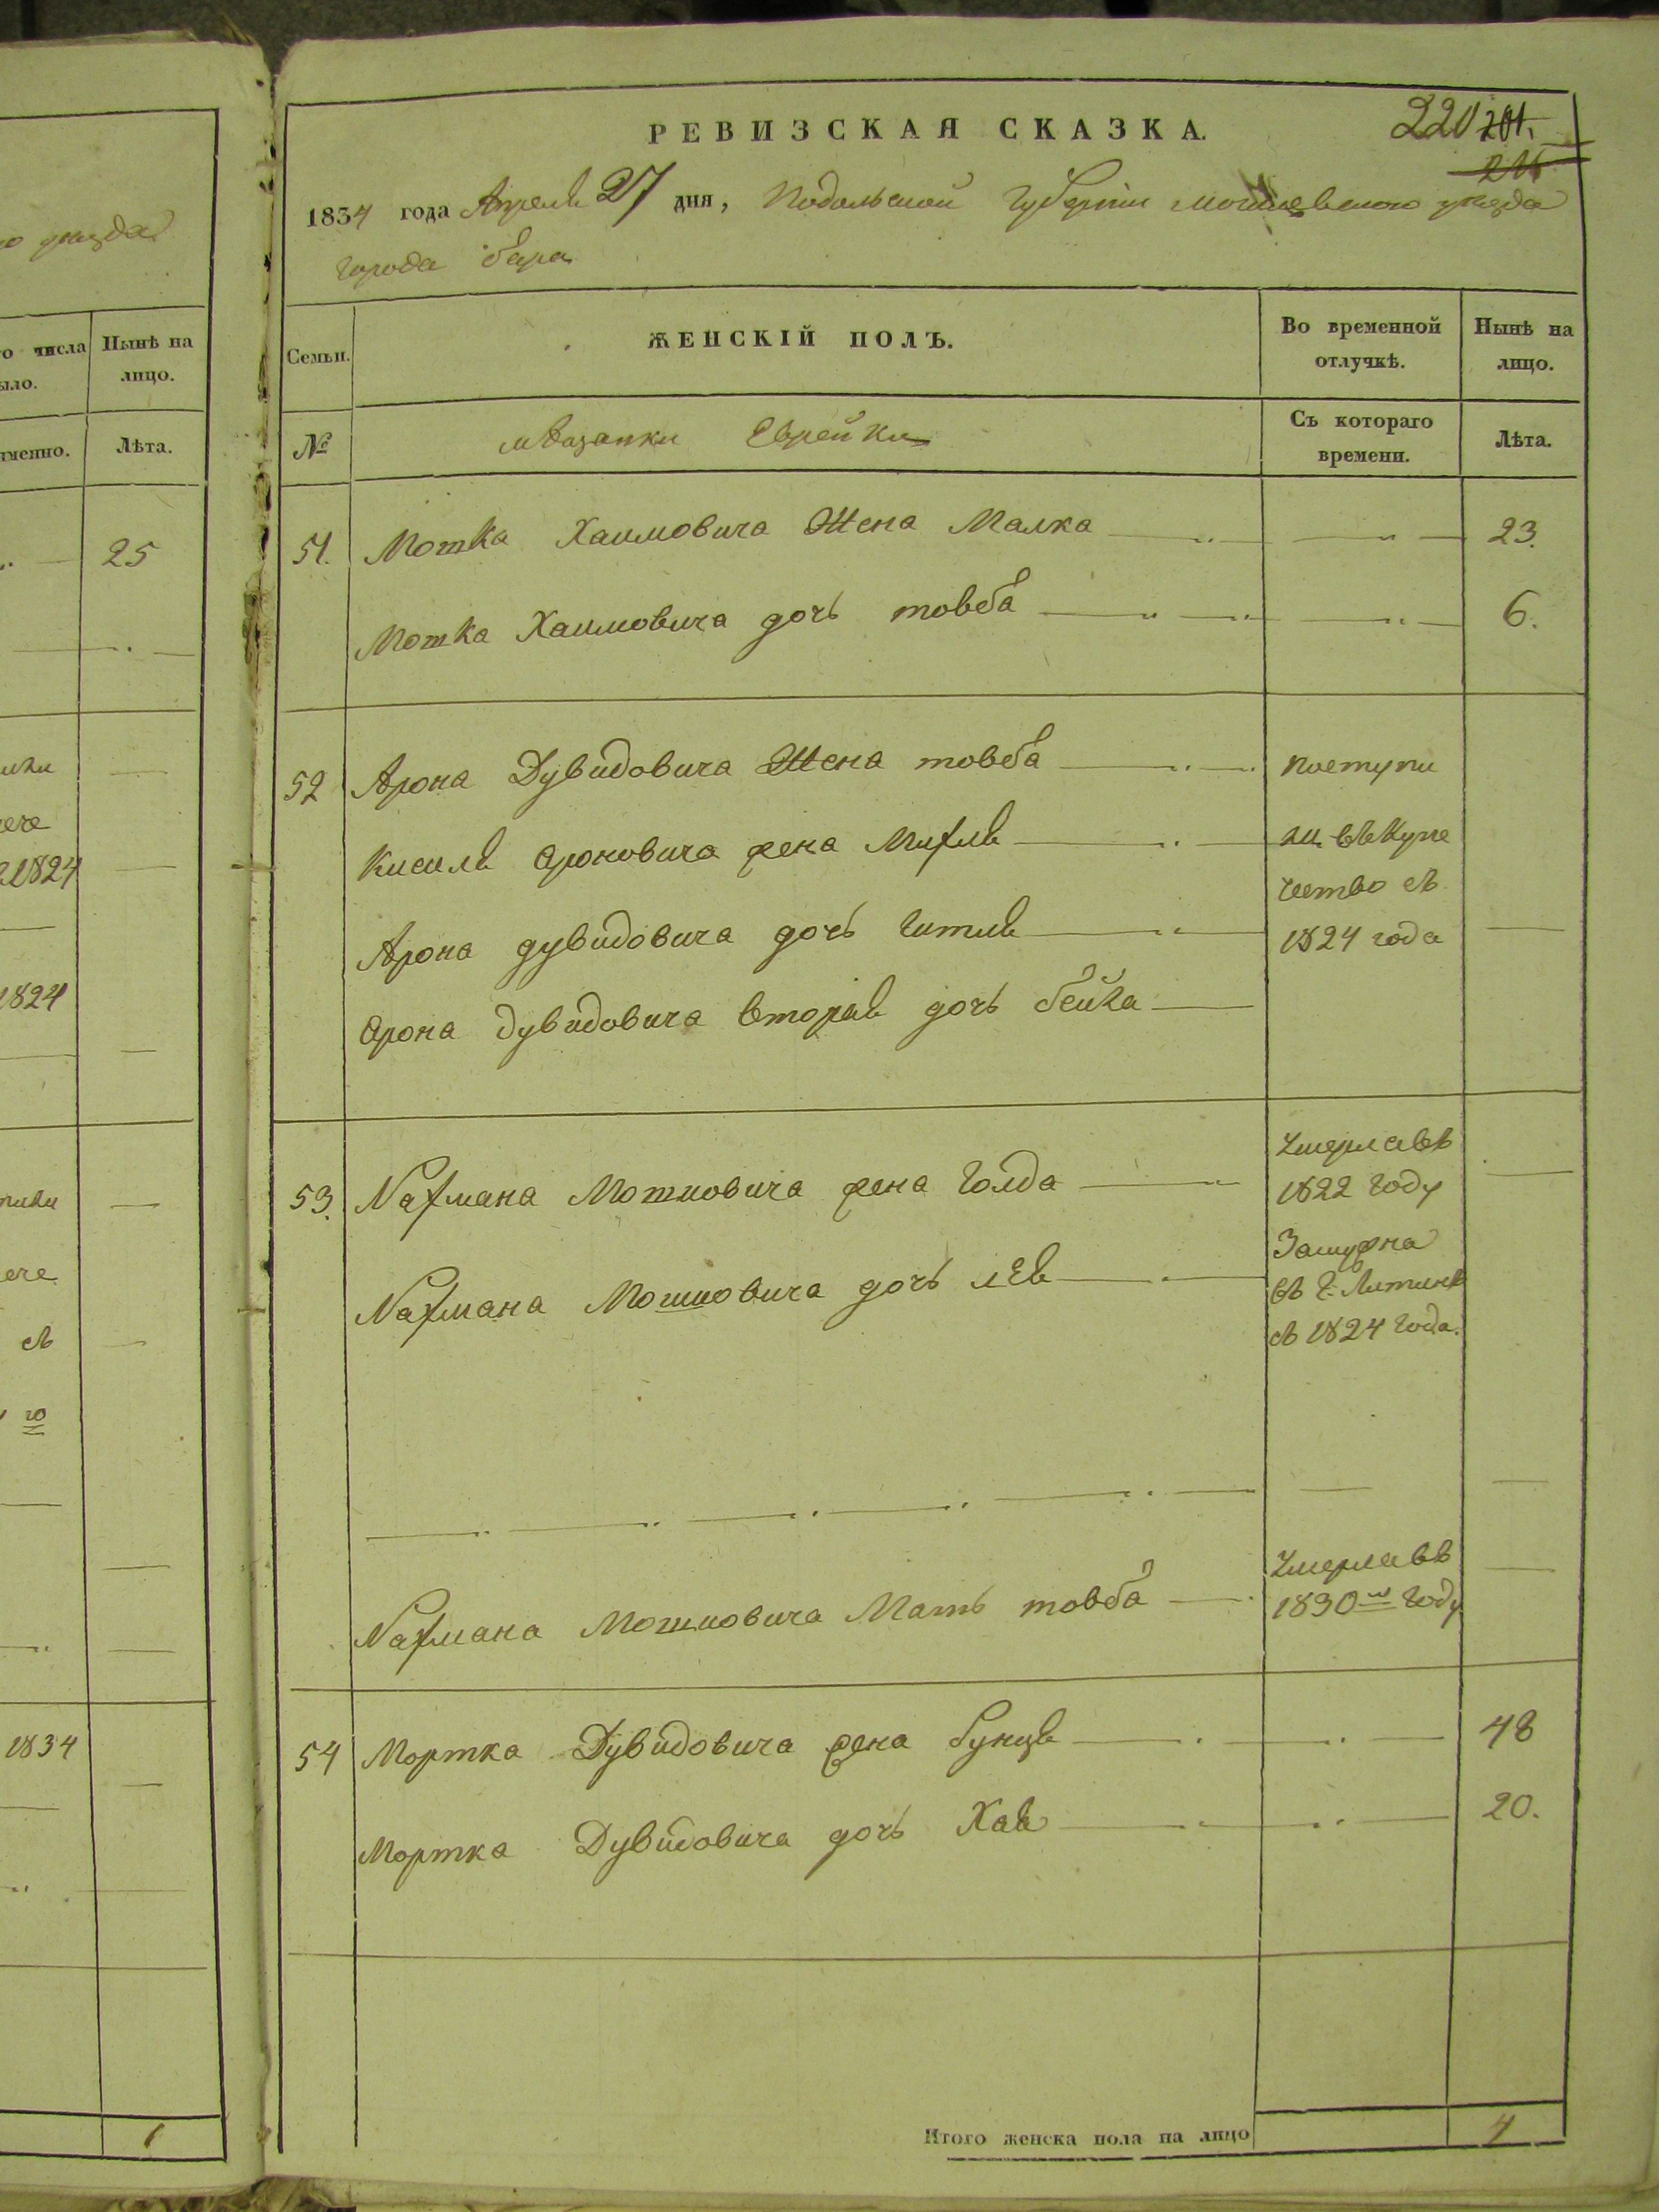 о уѣзда
го числа
Нынѣ на
ыло.
лицо.
именно.
Лѣта.
25
1824
1824
съ
го
1834
1
РЕВИЗСКАЯ СКАЗКА.
220 201.
1834 года Апреля 27 дня, Подольской Губерніи Могилевского уезда
города бара
Семьи.
ЖЕНСКІЙ ПОЛЪ.
Во временной отлучкѣ.
Нынѣ на лицо.
№
мѣщанки Еврейки
Съ котораго времени.
Лѣта.
51. Мошка Хаимовича Жена Малка 23.
Мошка Хаимовича дочь товба 6.
52 Арона Дувидовича Жена товба поступи
Кисиля Ароновича жена Михля ли въ Купе
чество съ
Арона дувидовича дочь гитля 1824 года
Арона дувидовича вторая дочь бейла
53. Нахмана Мошковича жена Голда Умерла въ
1822 году
Замужна
Нахмана Мошковича дочь лея въ г. Литинѣ
съ 1824 года.
Нахмана Мошковича Мать товба Умерла въ
1830м году
54 Мортка Дувидовича жена бунця 48
Мортка Дувидовича дочь Хая 20.
Итого женска пола на лицо 4